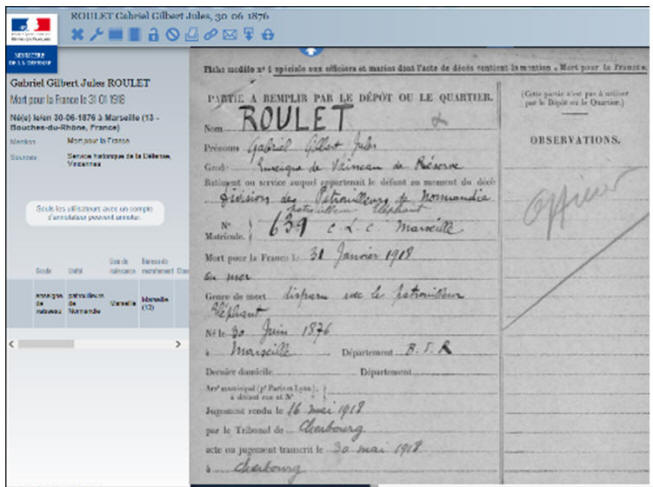 ROULET Gabriel Gilbert Jules, 30-06-1876
MINISTÈRE
DE LA DÉFENSE
Gabriel Gilbert Jules ROULET
Mort pour la France le 31-01-1918
Né(e) le/en 30-06-1876 à Marseille (13 -
Bouches-du-Rhône, France)
Mention Mort pour la France
Sources Service historique de la Défense,
Vincennes
Seuls les utilisateurs avec un compte
d'annotateur peuvent annoter.
Grade Unité Lieu de naissance Bureau de recrutement
enseigne de vaisseau patrouilleurs de Normandie Marseille Marseille (13)
Fiche modèle nº 1 spéciale aux officiers et marins dont l'acte de décès contient la mention « Mort pour la France
PARTIE A REMPLIR PAR LE DÉPÔT OU LE QUARTIER.
(Cette partie n'est pas à utiliser
par le Dépôt ou le Quartier.)
OBSERVATIONS.
Officier
Nom ROULET
Prénoms Gabriel Gilbert Jules
Grade Enseigne de Vaisseau de Réserve
Bâtiment ou service auquel appartenait le défunt au moment du décès
Divisions des Patrouilleurs de Normandie
patrouilleur Eléphant
Nº Matricule. 639 C.L.C Marseille
Mort pour la France le 31 Janvier 1918
en mer
Genre de mort disparu avec le patrouilleur
Eléphant
Né le 30 Juin 1876
à Marseille Département B. d. R
Dernier domicile Département
Arrᵗ municipal (pʳ Paris et Lyon),
à défaut rue et Nº
Jugement rendu le 16 mai 1918
par le Tribunal de Cherbourg
acte ou jugement transcrit le 30 mai 1918
à Cherbourg